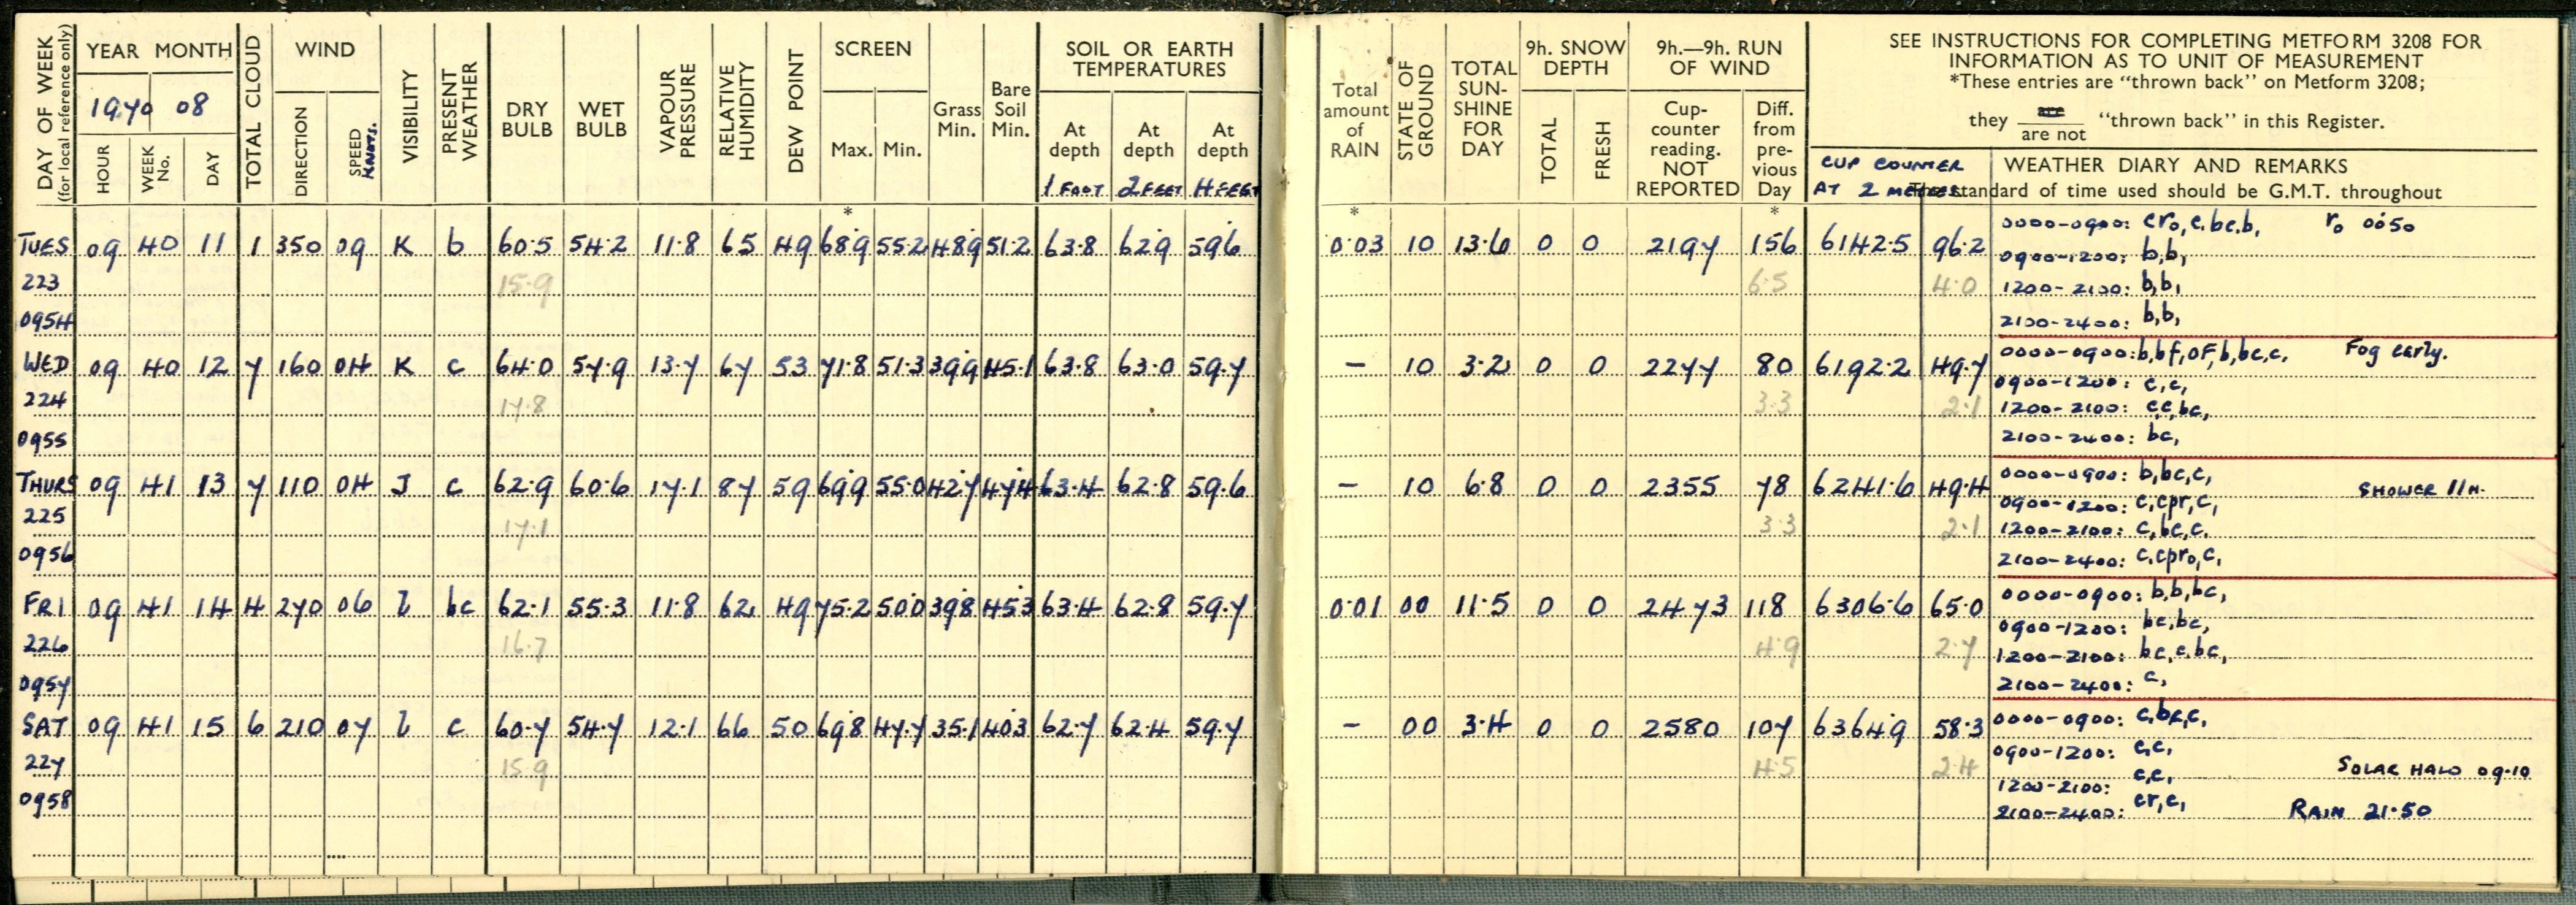 DAY OF WEEK (for local reference only)
YEAR MONTH
1970 08
HOUR
WEEK No.
DAY
TOTAL CLOUD
WIND
DIRECTION
SPEED KNOTS.
VISIBILITY
PRESENT WEATHER
DRY BULB
WET BULB
VAPOUR PRESSURE
RELATIVE HUMIDITY
DEW POINT
SCREEN
Max. Min.
*
Grass Min.
Bare Soil Min.
SOIL OR EARTH TEMPERATURES
At depth 1 FOOT
At depth 2 FEET
At depth 4 FEET
Total amount of RAIN
*
STATE OF GROUND
TOTAL SUN-SHINE FOR DAY
9h. SNOW DEPTH
TOTAL
FRESH
9h.—9h. RUN OF WIND
Cup-counter reading. NOT REPORTED
Diff. from pre-vious Day
*
SEE INSTRUCTIONS FOR COMPLETING METFORM 3208 FOR
INFORMATION AS TO UNIT OF MEASUREMENT
*These entries are “thrown back” on Metform 3208;
they are / are not “thrown back” in this Register.
CUP COUNTER
AT 2 METRES
WEATHER DIARY AND REMARKS
The standard of time used should be G.M.T. throughout
TUES 09 40 11 1 350 09 K b 60.5 54.2 11.8 65 49 68.9 55.2 48.9 51.2 63.8 62.9 59.6 0.03 10 13.6 0 0 2197 156 6142.5 96.2
223 15.9 6.5 4.0
0954
0000-0900: cr₀,c,bc,b, r₀ 0050
0900-1200: b,b,
1200-2100: b,b,
2100-2400: b,b,
WED 09 40 12 7 160 04 K c 64.0 57.9 13.7 67 53 71.8 51.3 39.9 45.1 63.8 63.0 59.7 — 10 3.2 0 0 2277 80 6192.2 49.7
224 17.8 3.3 2.1
0955
0000-0900: b,bf,OF,b,bc,c, Fog early.
0900-1200: c,c,
1200-2100: c,c,bc,
2100-2400: bc,
THURS 09 41 13 7 110 04 J c 62.9 60.6 17.1 87 59 69.9 55.0 42.7 47.4 63.4 62.8 59.6 — 10 6.8 0 0 2355 78 6241.6 49.4
225 17.1 3.3 2.1
0956
0000-0900: b,bc,c,
0900-1200: c,cpr,c, SHOWER 11H.
1200-2100: c,bc,c.
2100-2400: c,cpr₀,c,
FRI 09 41 14 4 270 06 L bc 62.1 55.3 11.8 62 49 75.2 50.0 39.8 45.3 63.4 62.8 59.7 0.01 00 11.5 0 0 2473 118 6306.6 65.0
226 16.7 4.9 2.7
0957
0000-0900: b,b,bc,
0900-1200: bc,bc,
1200-2100: bc,c,bc,
2100-2400: c,
SAT 09 41 15 6 210 07 L c 60.7 54.7 12.1 66 50 69.8 47.7 35.1 40.3 62.7 62.4 59.7 — 00 3.4 0 0 2580 107 6364.9 58.3
227 15.9 4.5 2.4
0958
0000-0900: c,bc,c,
0900-1200: c,c, SOLAR HALO 09.10
1200-2100: c,c,
2100-2400: cr,c, RAIN 21.50